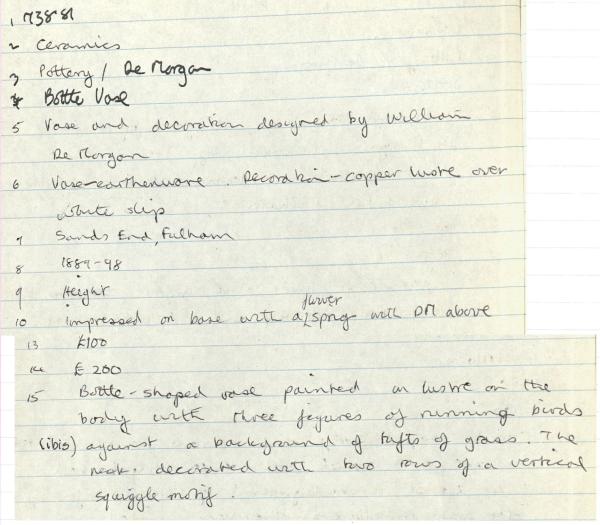 1 73881
2 Ceramics
3 Pottery / De Morgan
4 Bottle Vase
5 Vase and decoration designed by William
De Morgan
6 Vase-earthenware. Decoration-copper lustre over
white slip
7 Sands End, Fulham
8 1889-98
9 Height
flower
10 impressed on base with a sprig with DM above
13 £100
14 £200
15 Bottle-shaped vase painted in lustre on the
body with three figures of running birds
(ibis) against a background of tufts of grass. The
neck decorated with two rows of a vertical
squiggle motif.